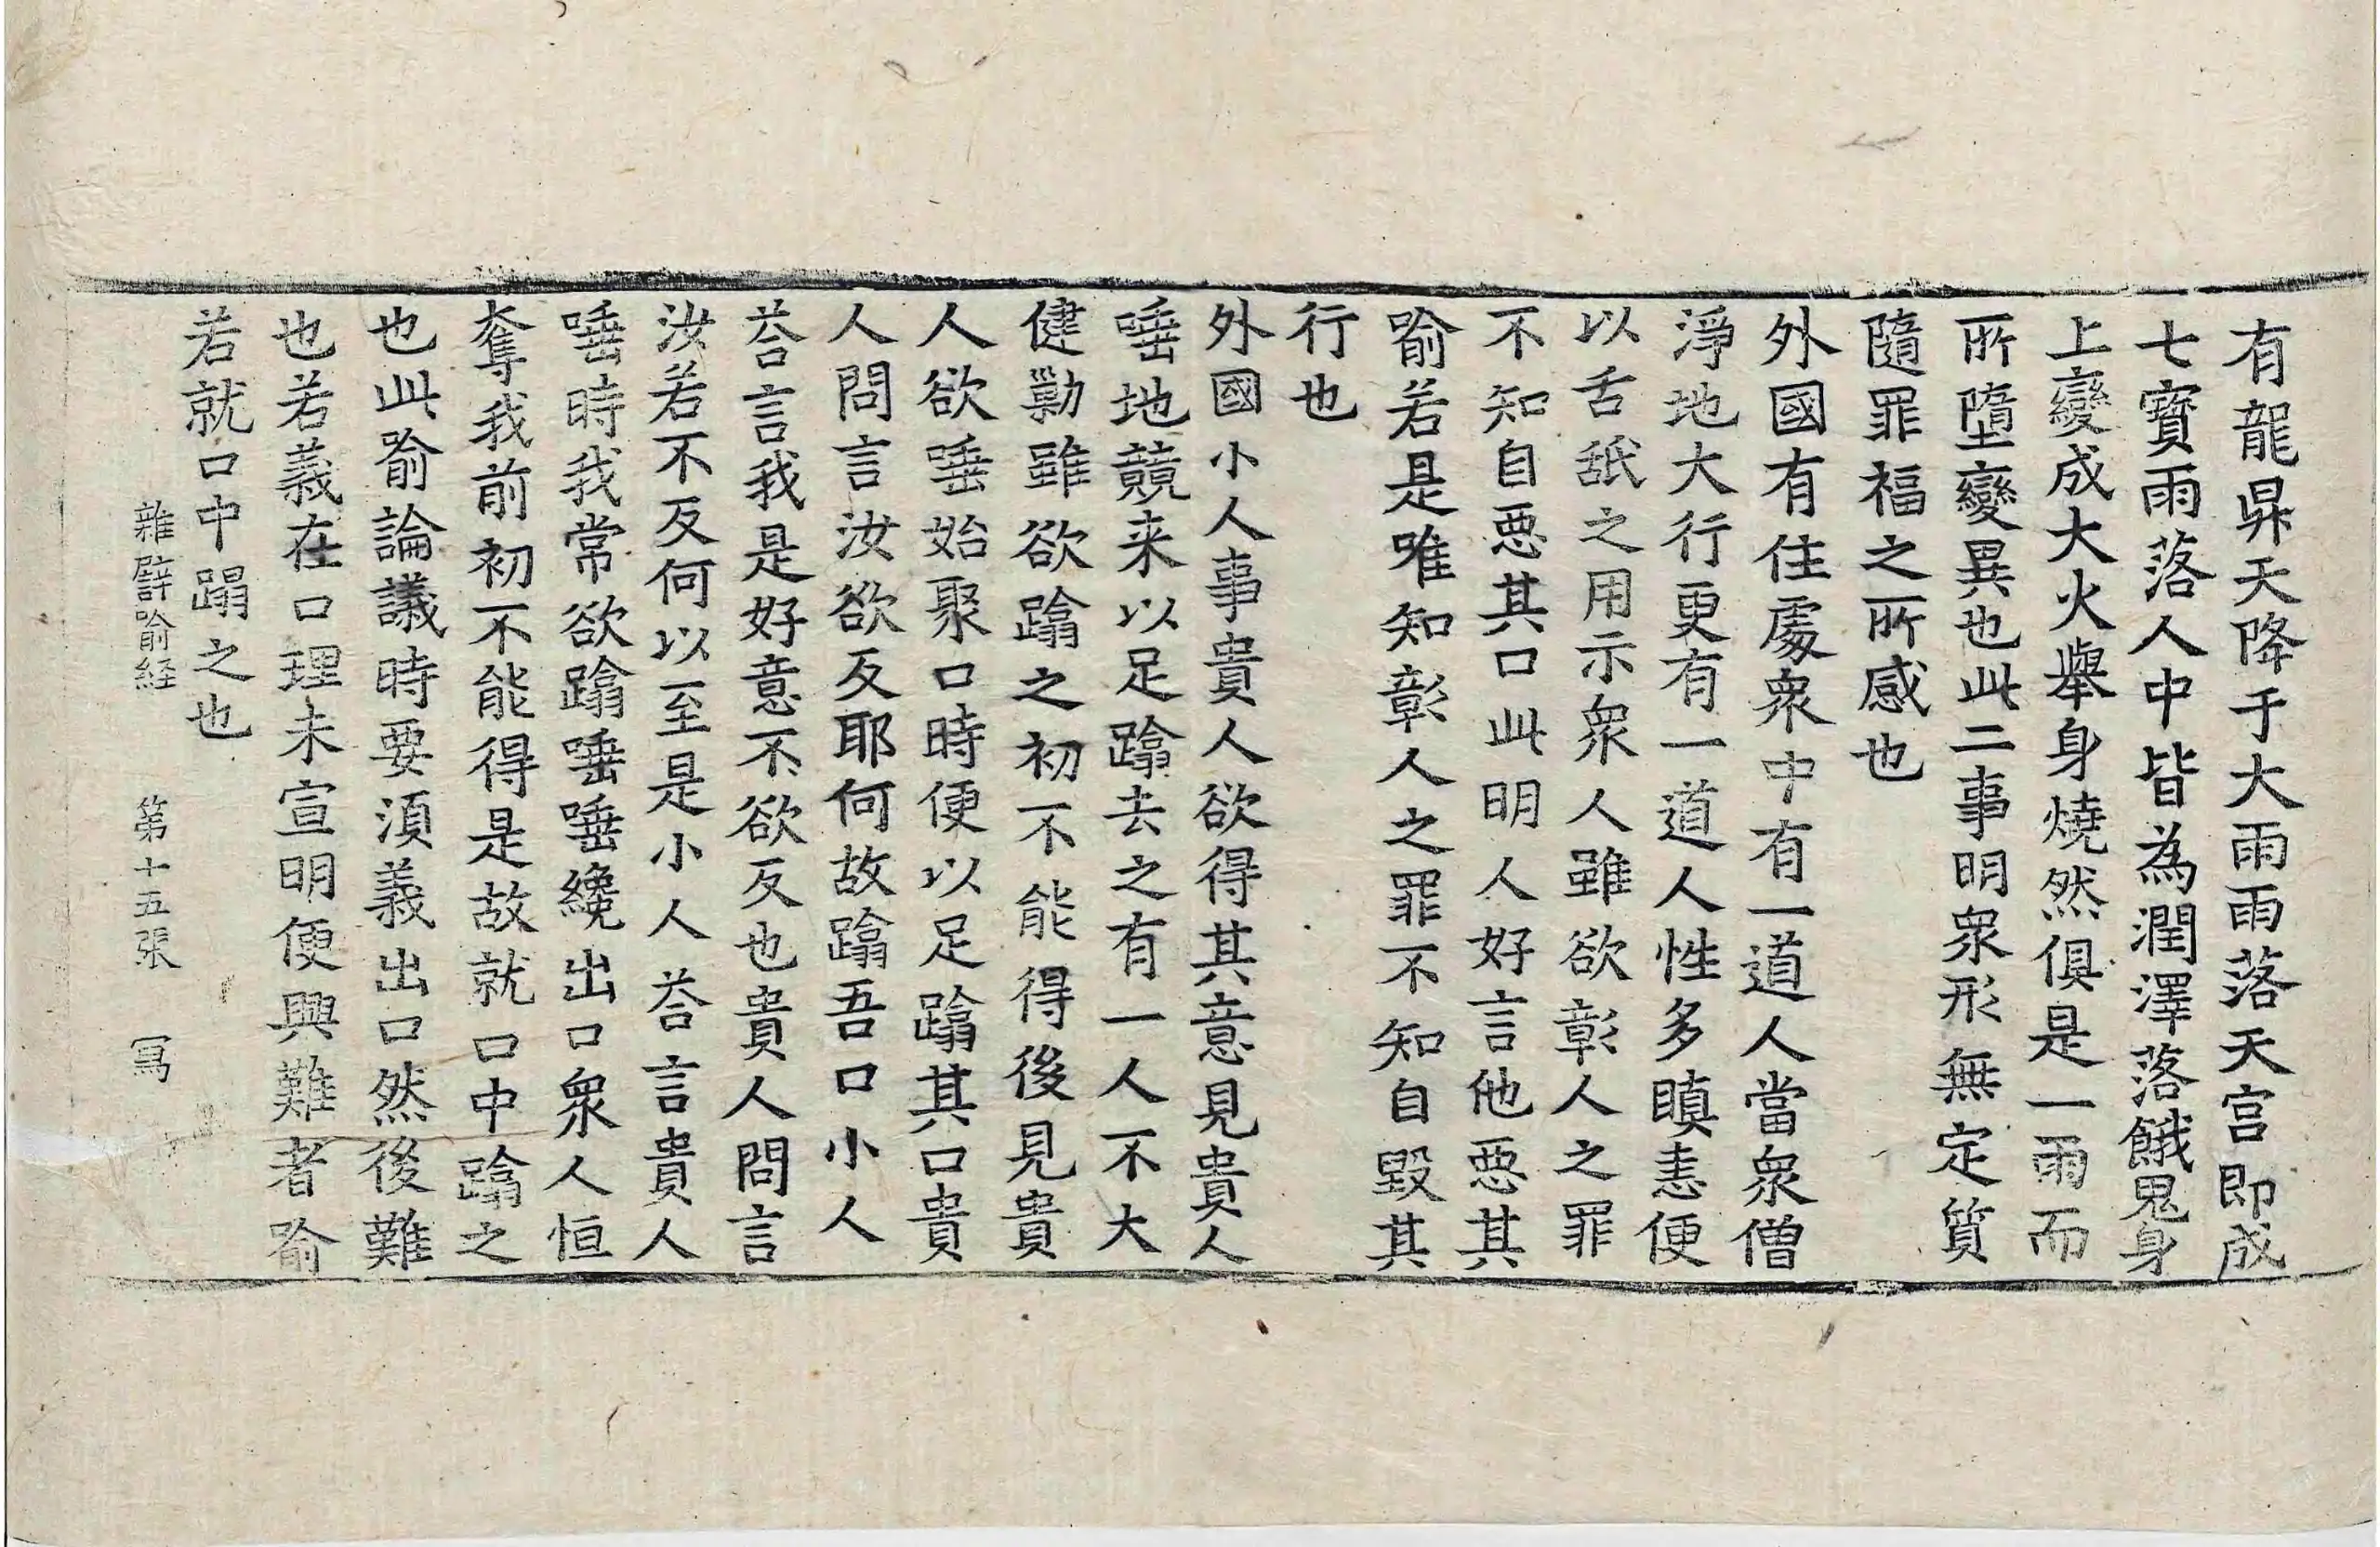 有龍昇天降于大雨雨落天宮即成
七寶雨落人中皆為潤澤落餓鬼身
上變成大火舉身燒然俱是一雨而
所墮變異也此二事明衆形無定質
隨罪福之所感也
外國有住處衆中有一道人當衆僧
淨地大行更有一道人性多瞋恚便
以舌舐之用示衆人雖欲彰人之罪
不知自惡其口此明人好言他惡其
喻若是唯知彰人之罪不知自毀其
行也
外國小人事貴人欲得其意見貴人
唾地競来以足蹹去之有一人不大
健勦雖欲蹹之初不能得後見貴
人欲唾始聚口時便以足蹹其口貴
人問言汝欲反耶何故蹹吾口小人
荅言我是好意不欲反也貴人問言
汝若不反何以至是小人荅言貴人
唾時我常欲蹹唾唾纔出口衆人恒
奪我前初不能得是故就口中蹹之
也此喻論議時要須義出口然後難
也若義在口理未宣明便興難者喻
若就口中蹋之也
雜譬喻経 第十五張 冩